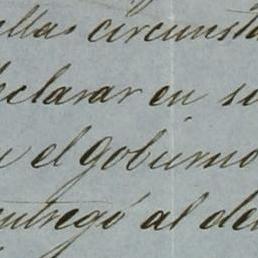 ellas circunsta
eclarar en su
n el Gobierno
entregó al de